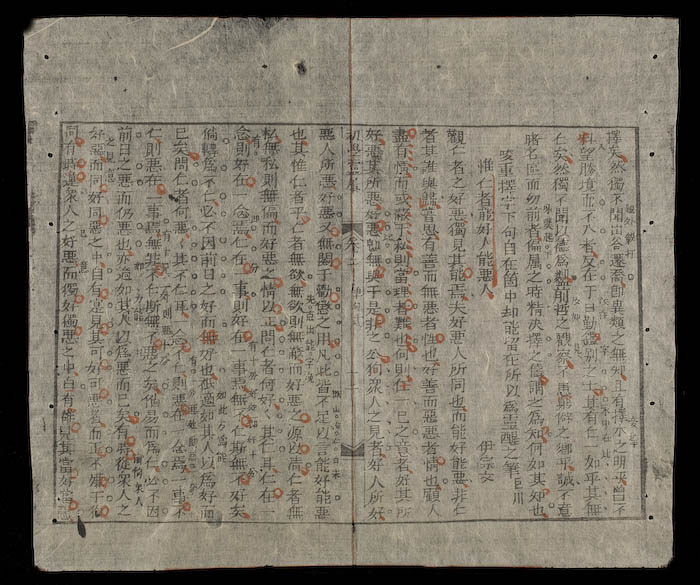 擇矣然獨不聞出谷遷喬即異類之無知且有擇木之明乎曾不
料望勝境而不入者反在于已勤鑑別之士其有仁一如乎其無
仁矣然獨不聞以德為鄰前哲之觀察不之鄉乎誠不意
睹名區而勿前者偏屬之專精決擇之儔謂之為知何如其知也
重擇字下句自在箇中却能留在所以為靈醒之筆 巨川
惟仁者能好人能惡人 伊崇文
觀仁者之好惡獨見其能焉夫好惡人所同也而能好能惡非仁
者其誰與歸嘗思有善而無惡者性也好善而惡惡者情也顧人
盡有情而或蔽于私則當理者難也何則任一己之意者好其所
好惡其所惡好惡即無與于是非之公狥衆人之見者好人所好
初學 卷二
惡人所惡好惡又無關于勸懲之用凡此皆不足以言能好能惡
也其惟仁者乎仁者無欲無欲則無蔽而好惡之源以清仁者無
私無私則無偏而好惡之情以正問仁者何好好其仁耳仁在一
念則好在一念焉仁在一事則好在一事焉無不仁斯無不好矣
倘轉為不仁必不因前日之好而無好也亦適如其人以為好而
已矣問仁者何惡惡其不仁耳一念不仁則惡在一念焉一事不
仁則惡在一事焉無非不仁斯無不惡之矣倘易而為仁必不因
前日之惡而仍惡也亦適如其人以為惡而已矣有時從衆人之
好惡而同好同惡之中自有定見其可好可惡者而正不嫌于狥
同有時違衆人之好惡而獨好獨惡之中自有確見其當好當惡